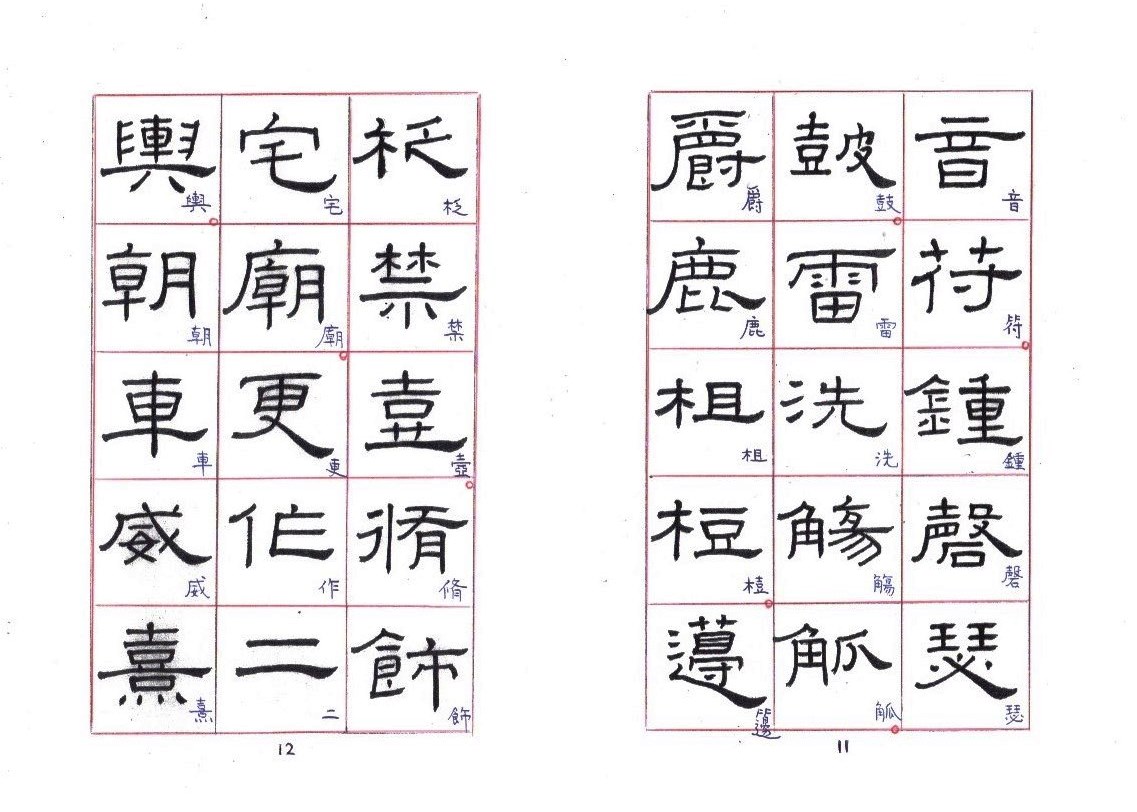 音苻鍾磬瑟
音符鍾磬瑟
鼓雷洗觴觚
鼓雷洗觴觚
爵鹿柤梪籩
爵鹿柤梪籩
11
柉禁壺脩飾
柉禁壺脩飾
宅廟更作二
宅廟更作二
輿朝車威熹
輿朝車威熹
12